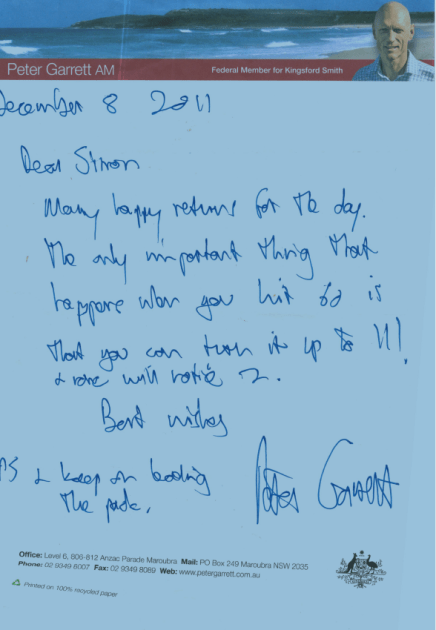 Peter Garrett AM
Federal Member for Kingsford Smith
December 8 2011
Dear Simon
Many happy returns for the day.
The only important thing that
happens when you hit 60 is
that you can turn it up to 11!
& will notice
Best wishes
PS & keep on leading
the pack.
Peter Garrett
Office: Level 6, 806-812 Anzac Parade Maroubra Mail: PO Box 249 Maroubra NSW 2035
Phone: 02 9349 8007 Fax: 02 9349 8089 Web: www.petergarrett.com.au
Printed on 100% recycled paper